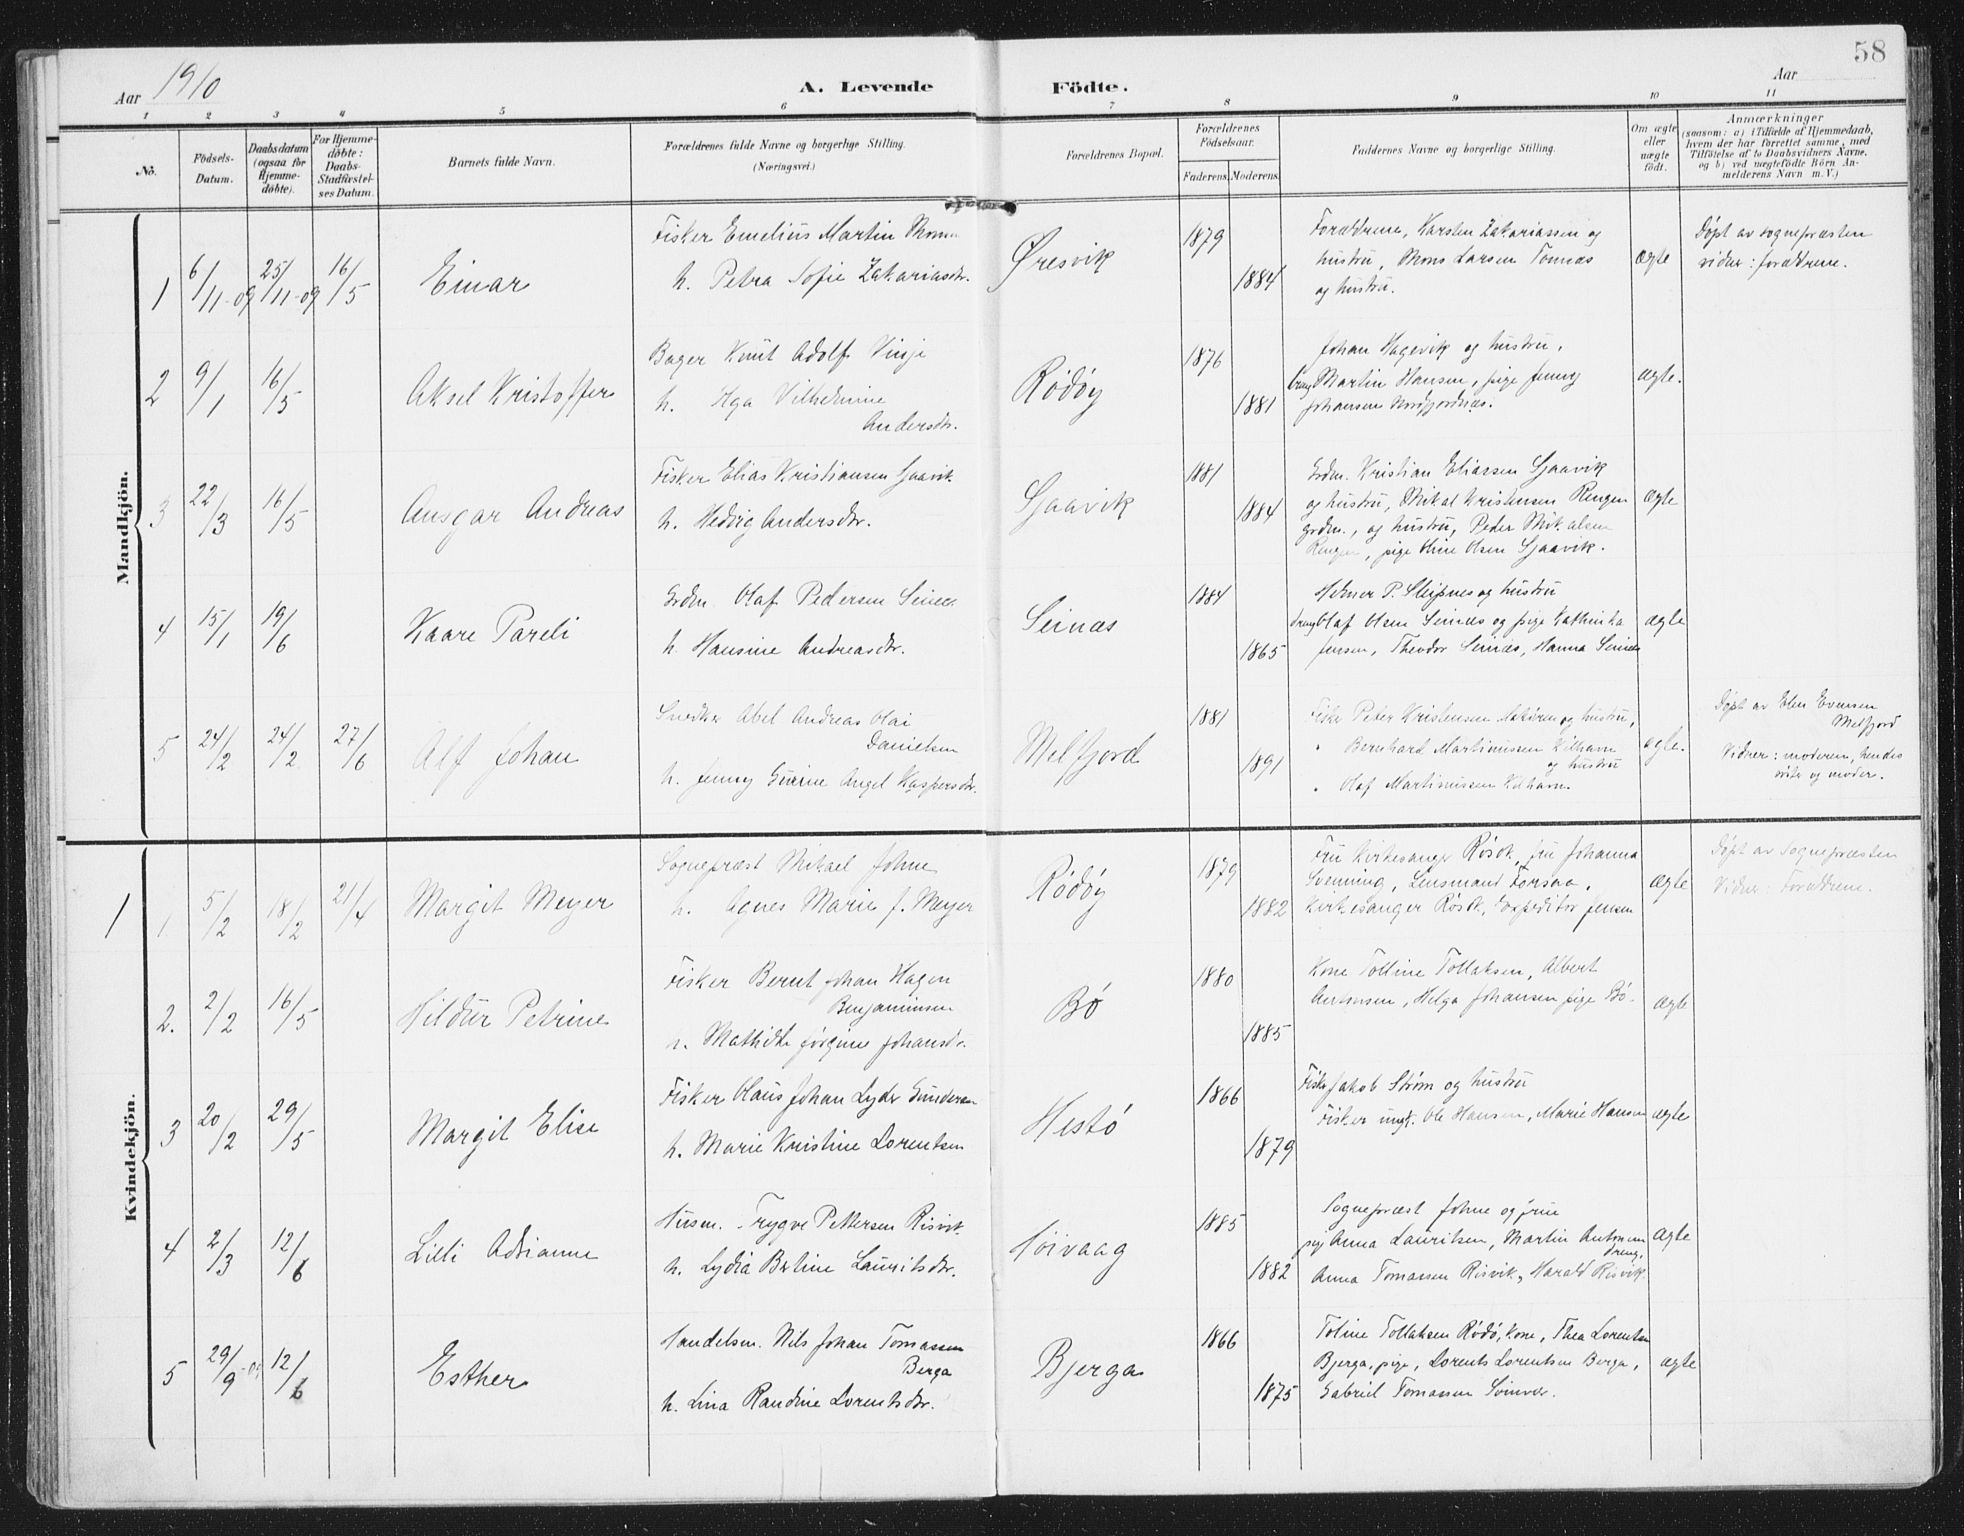 58
Aar 1910
A. Levende Födte.
Aar
1 2 3 4 5 6 7 8 9 10 11
No.
Födsels-Datum.
Daabsdatum (ogsaa for Hjemmedöbte).
For Hjemmedöbte: Daabs-Stadfæstelses Datum.
Barnets fulde Navn.
Forældrenes fulde Navne og borgerlige Stilling.
(Næringsvei.)
Forældrenes Bopæl.
Forældrenes Födselsaar.
Faderens. Moderens.
Faddernes Navne og borgerlige Stilling.
Om ægte eller uægte födt.
Anmærkninger
(saasom: a) i Tilfælde af Hjemmedaab,
hvem der har forrettet samme, med
Tilföielse af to Daabsvidners Navne,
og b) ved uægtefödte Börn An-
melderens Navn m. V.)
Mandkjön.
1 6/11-09 25/11-09 16/5 Einar
Fisker Emelius Martin
h. Petra Sofie Zakariasdr.
Øresvik 1879 1884
Forældrene, Karsten Zakariassen og
hustru, Mons Larsen Tonnes
og hustru.
ægte
Døpt av sognepræsten
vidner: forældrene.
2 9/1 16/5 Aksel Kristoffer
Bager Knut Adolf Vinje
h. Aga Vilhelmine
Andersdtr.
Rödöy 1876 1881
Johan Hagevik og hustru,
Martin Hansen, pige Jenny
Johansen Nordfjordnæs.
ægte.
3 22/3 16/5 Ansgar Andreas
Fisker Elias Kristiansen Sjaavik
h. Hedvig Andersdtr.
Sjaavik 1881 1884
Grdm. Kristian Eliassen Sjaavik
og hustru, Mikal Kristensen Rengen
grdm., og hustru, Peder Mikalsen
Rengen, pige Oline Olsen Sjaavik.
ægte
4 15/1 19/6 Kaare Pareli
Grdm. Olaf Pedersen Seinæs
h. Hansine Andreasdtr.
Seinæs 1884 1865
Helmer P. Sleipnes og hustru
Olaf Olsen Seinæs og pige Kathinka
Jensen, Theodor Seinæs, Hanna Seinæs
ægte
5 24/2 24/2 27/6 Alf Johan
Snedker Abel Andreas Olai
Danielsen
h. Jenny Gurine Angel Kaspersdtr.
Melfjord 1881 1891
Fisker Peter Kristensen og hustru,
" Bernhard Martinussen Kilhavn
og hustru
" Olaf Martinussen Kilhavn.
ægte.
Døpt av Elen Evensen
Melfjord
Vidner: moderen, hendes
søster og moder.
Kvindekjön.
1 1 5/2 18/2 21/4 Margit Meyer
Sognepræst Mikael Johne
h. Agnes Marie f. Meyer
Rödöy 1879 1882
Fru Kirkesanger Røsok, fru Johanna
Svenning, Lensmand Forsaa,
Kirkesanger Røsok, Expeditør Jensen
ægte
Døpt av Sognepræsten
Vidner: Forældrene.
2. 2/2 16/5 Hildur Petrine
Fisker Bernt Johan Hagen
Benjaminsen
h. Mathilde Jørgine Johansdtr.
Bö 1880 1885
Kone Tolline Tollaksen, Albert
Antonsen, Helga Johansen pige Bö.
ægte
3 20/2 29/5 Margit Elise
Fisker Olaus Johan Lyder Gundersen
h. Marie Kristine Lorentsen
Hestö 1866 1879
Fisker Jakob Strøm og hustru
Fisker ungk. Ole Hansen, Marie Hansen
ægte
4 2/3 12/6 Lilli Adrianne
Husm. Trygve Pettersen Risvik
h. Lydia Bertine Lauritsdtr.
1885 1882
Sognepræst Johne og frue
pige Anna Lauritsen, Martin Antonsen
dreng,
Anna Tomassen Risvik, Harald Risvik
ægte
5 29/9-09 12/6 Esther
Handelsm. Nils Johan Tomassen
Berga
h. Lina Randine Lorentsdtr.
Bjerga 1866 1875
Toline Tollaksen Rödö, kone, Thea Lorentsen
Bjerga, pige, Lorents Lorentsen Berga,
Gabriel Tomassen
ægte